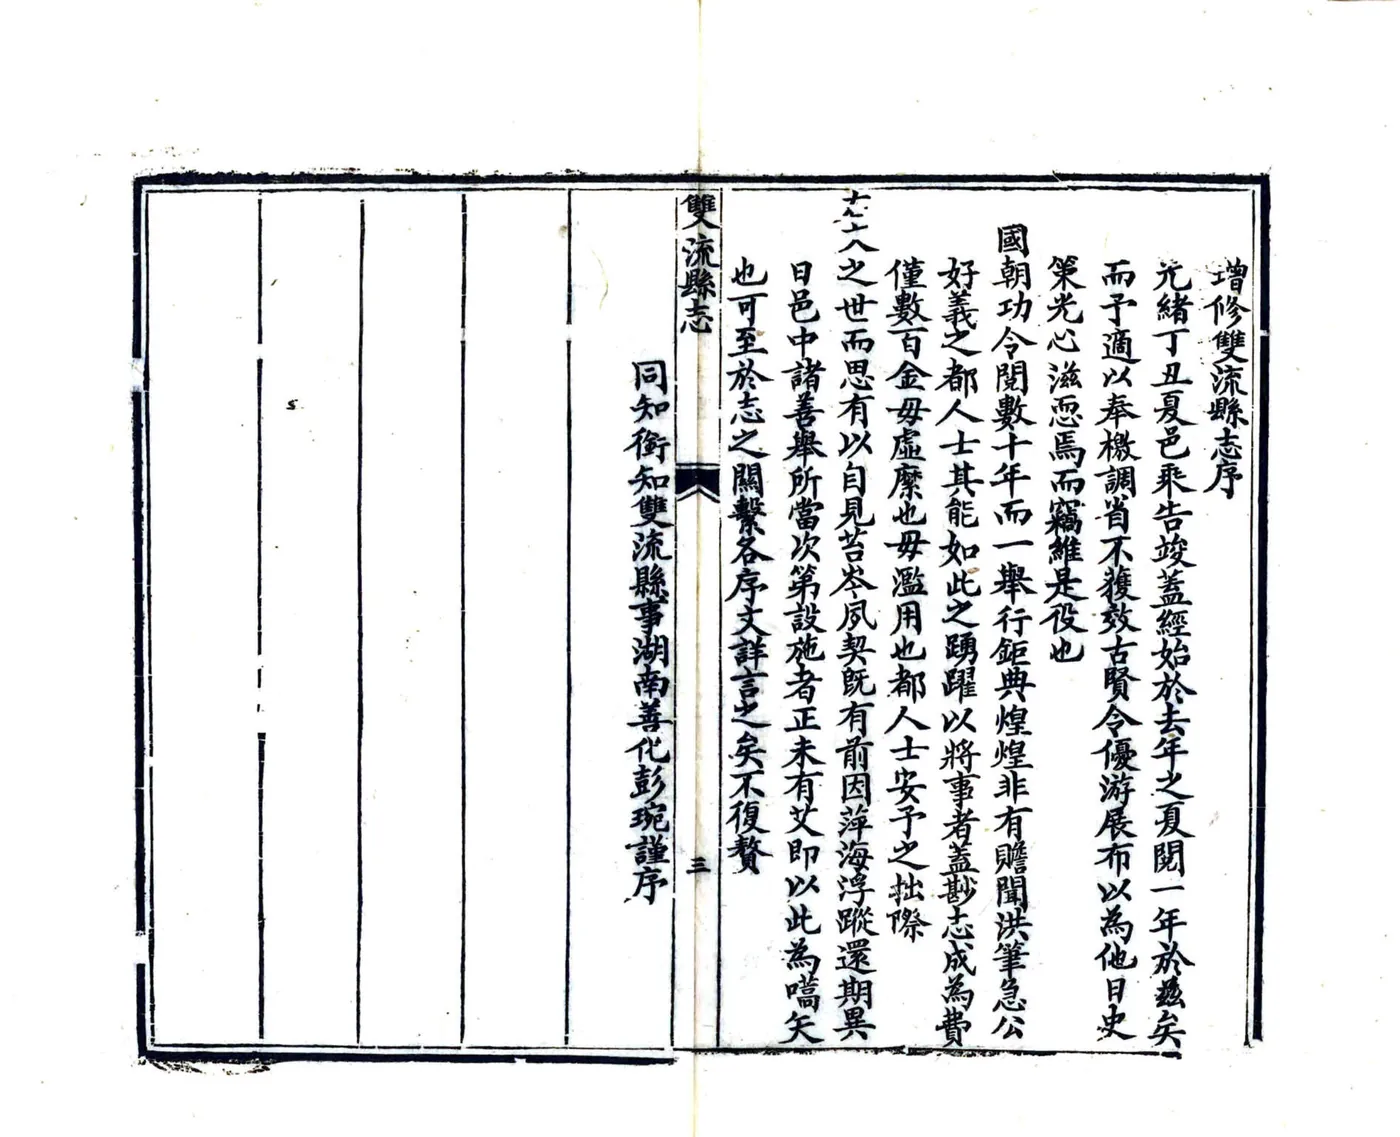 增修雙流縣志序
光緒丁丑夏邑乘告竣蓋經始於去年之夏閱一年於茲矣
而予適以奉檄調省不獲效古賢令優游展布以為他日史
策光心滋恧焉而竊維是役也
國朝功令閱數十年而一舉行鉅典煌煌非有贍聞洪筆急公
好義之都人士其能如此之踴躍以將事者蓋尠志成為費
僅數百金毋虛縻也毋濫用也都人士安予之拙際
之世而思有以自見苔岑夙契既有前因萍海浮蹤還期異
日邑中諸善舉所當次第設施者正未有艾即以此為嚆矢
也可至於志之關繫各序文詳言之矣不復贅
雙流縣志
三
同知銜知雙流縣事湖南善化彭琬謹序